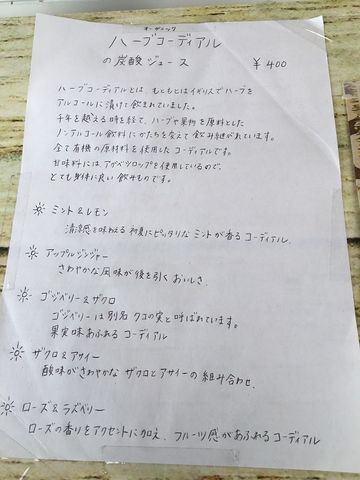 オーガニック
ハーブコーディアル
の炭酸ジュース ¥400
ハーブコーディアルとは、もともとはイギリスでハーブを
アルコールに漬けて飲まれていました。
千年を越える時を経て、ハーブや果物を原料とした
ノンアルコール飲料にかたちを変えて飲み継がれています。
全て有機の原材料を使用したコーディアルです。
甘味料にはアガベシロップを使用しているので、
とても身体に良い飲みものです。
ミント&レモン
清涼感を味わえる初夏にピッタリなミントが香るコーディアル.
アップルジンジャー
さわやかな風味が後を引くおいしさ.
ゴジベリー&ザクロ
ゴジベリーは別名クコの実と呼ばれています。
果実味あふれるコーディアル
ザクロ&アサイー
酸味がさわやかなザクロとアサイーの組み合わせ.
ローズ&ラズベリー
ローズの香りをアクセントに加え、フルーツ感があふれるコーディアル